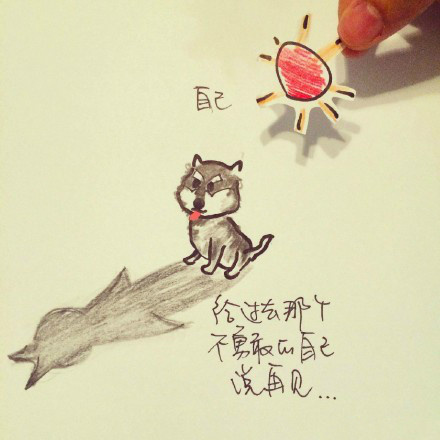 自己
给过去那个
不勇敢的自己
说再见...